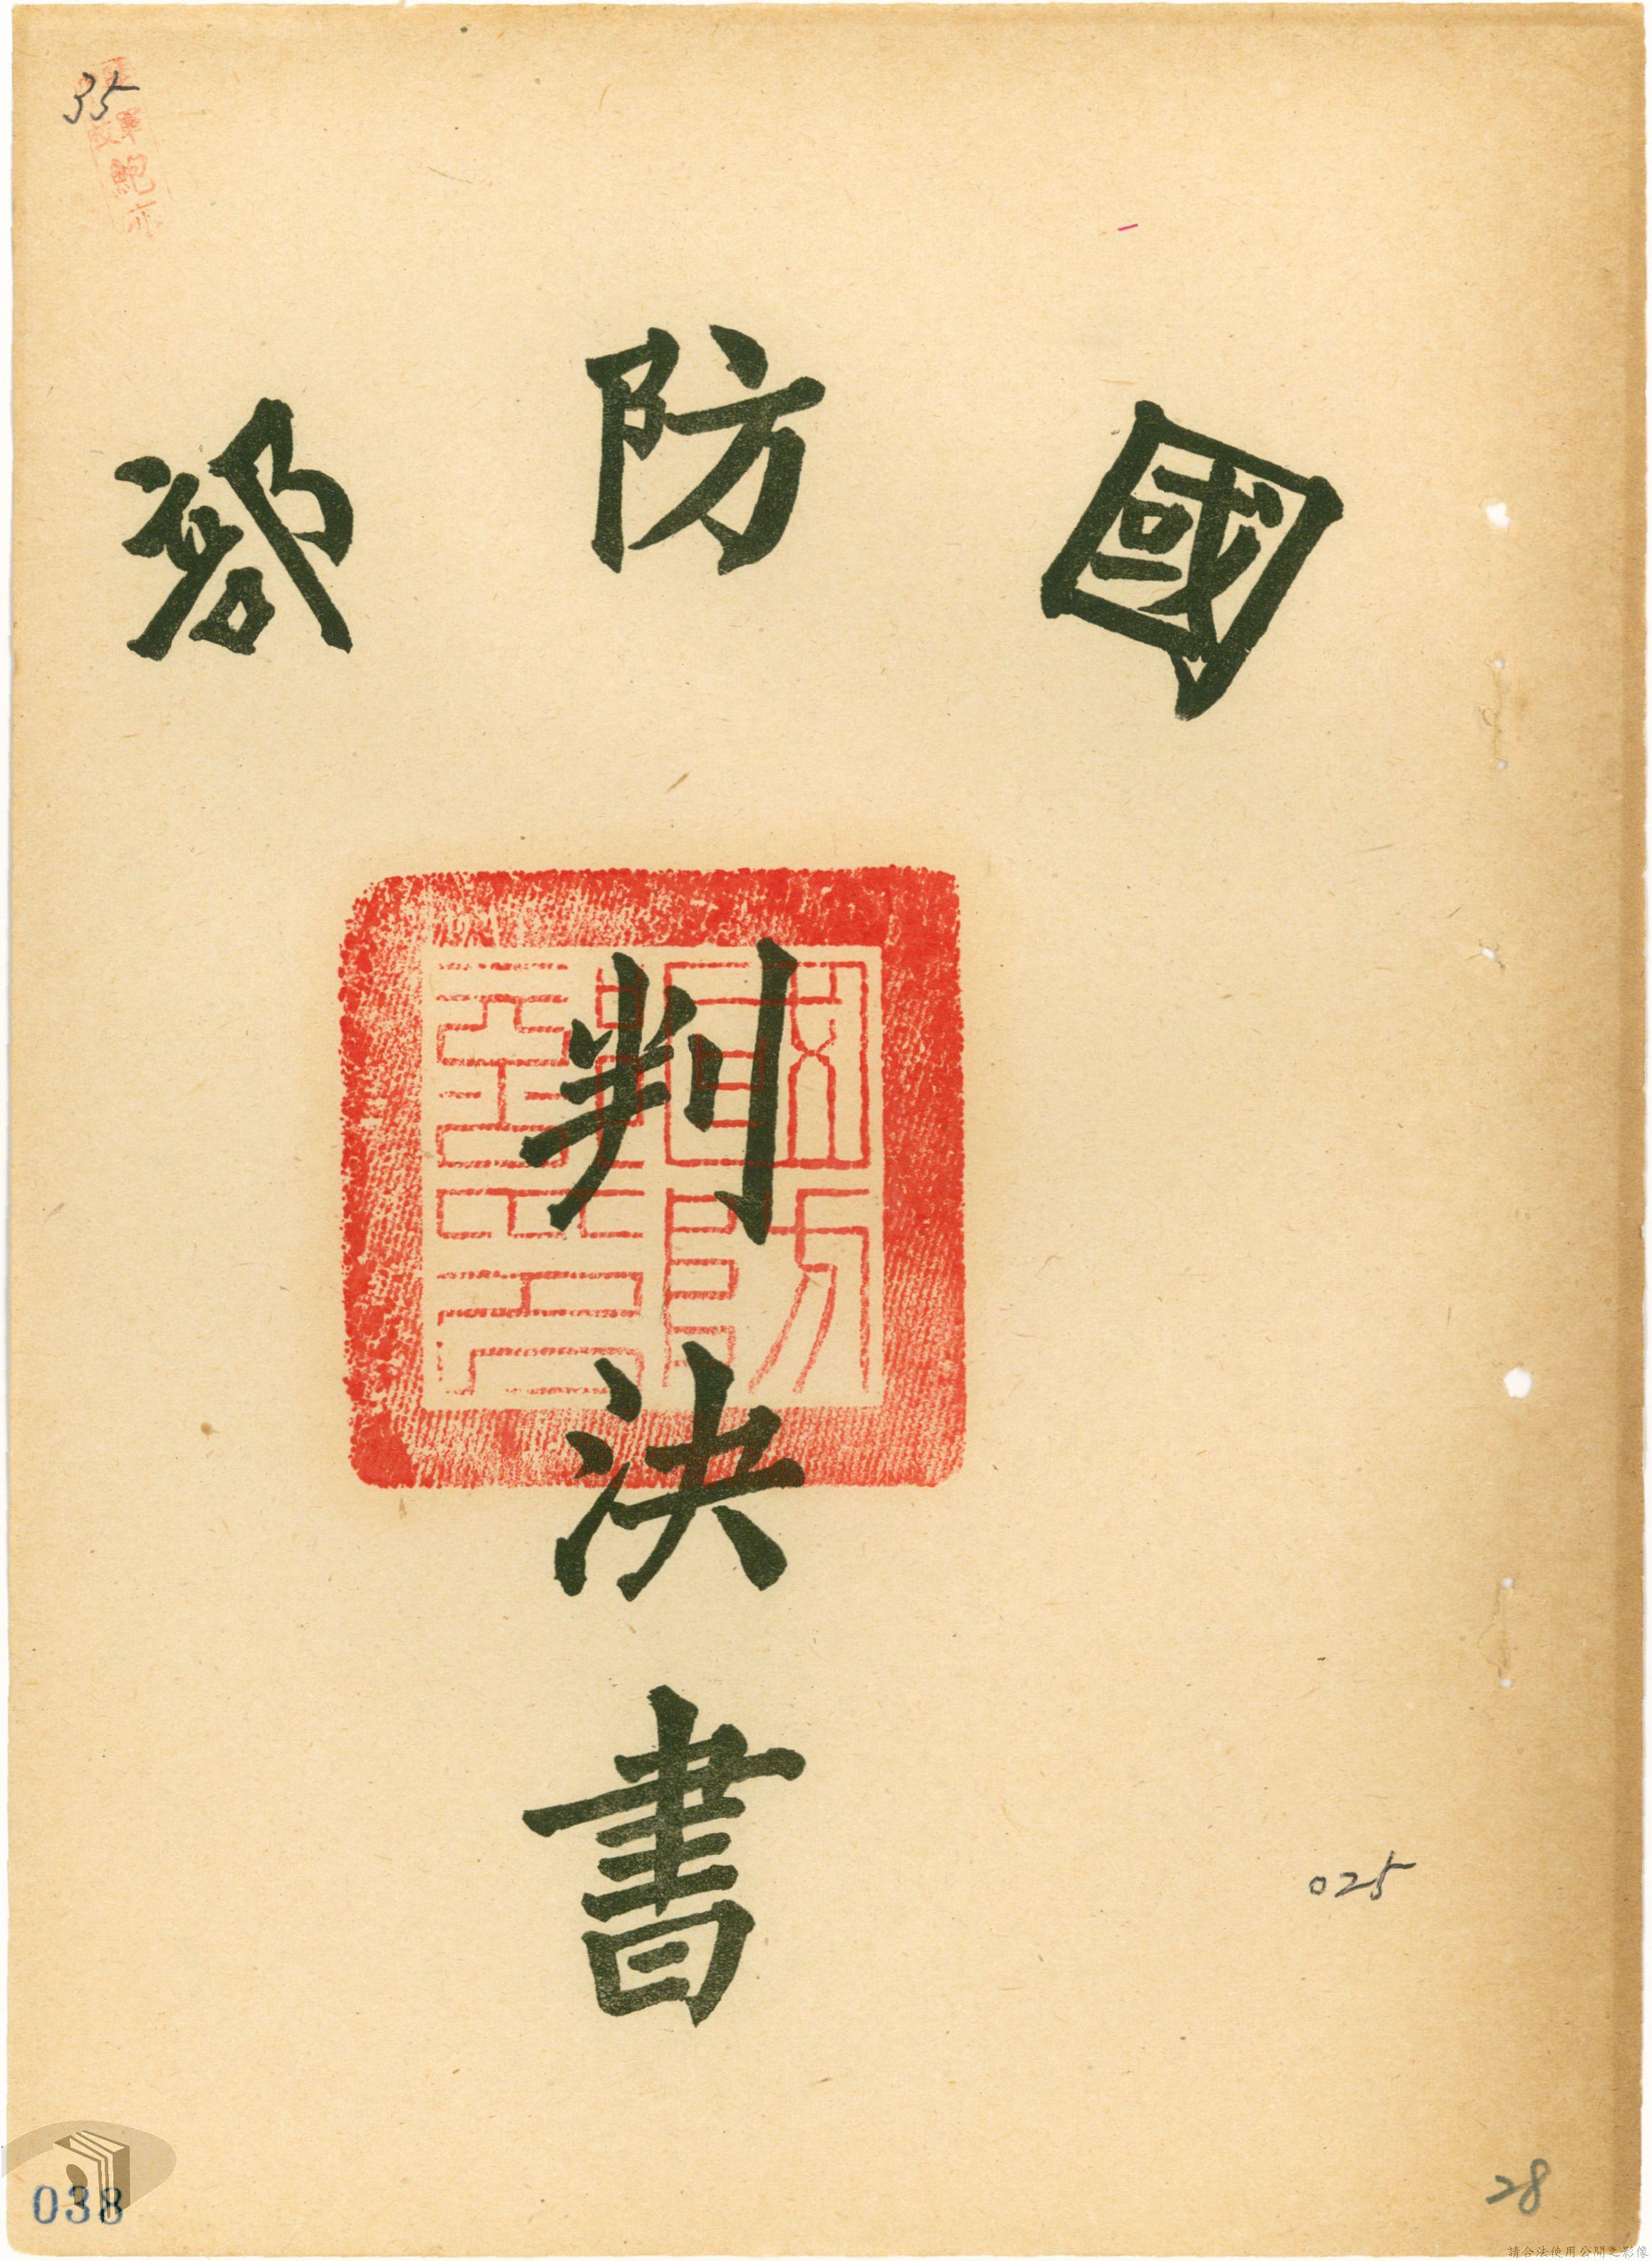 35
國防部
判決書
025
038
28
請合法使用公開之影像